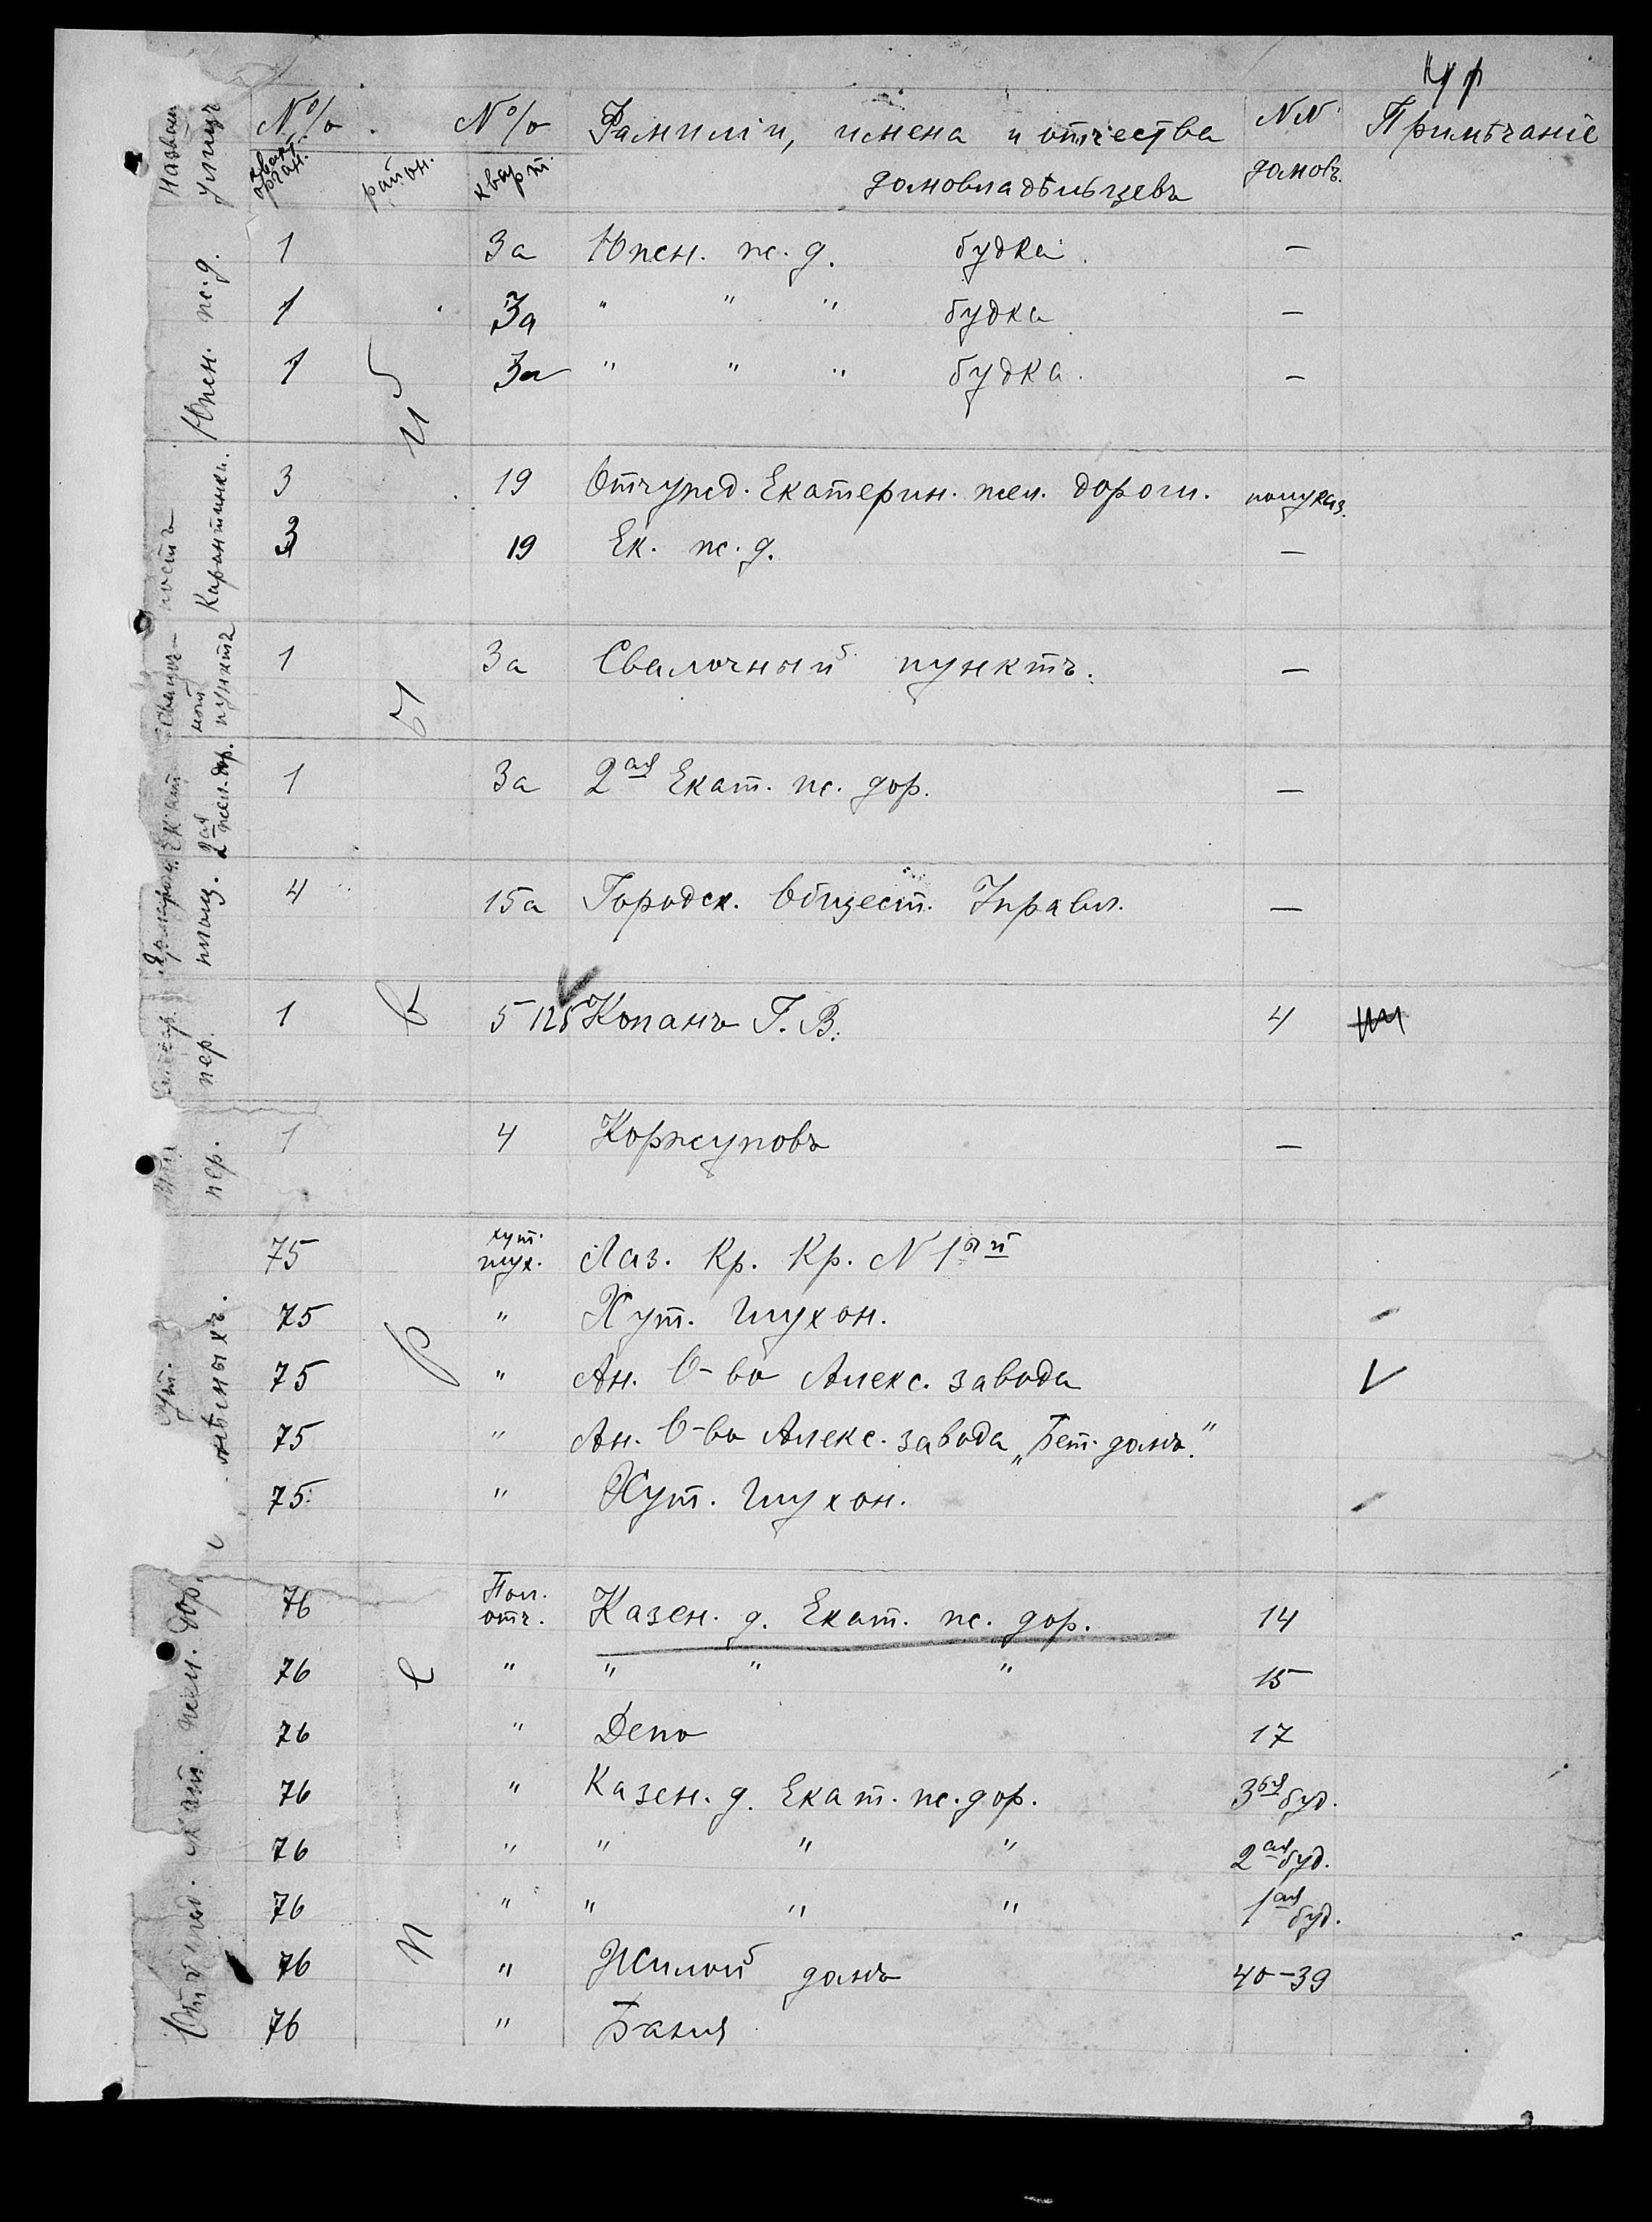 Назван улицъ
№№ район.
№№ кварт.
Фамиліи, имена и отчества домовладѣльцевъ
NN домовъ.
Примѣчаніе
Южн. ж. д.
1 3а Южн. ж. д. будка. —
1 3а " " " будка —
1 3а " " " будка. —
Карантинн.
3 19 Отчужд. Екатерин. жел. дороги. полуказ.
3 19 Ек. ж. д. —
Свалочный пунктъ
1 3а Свалочный пунктъ. —
Екат 2ая жел. дор.
1 3а 2ая Екат. ж. дор. —
Ярмароч. площ.
4 15а Городск. Общест. Управл. —
пер.
1 5 125 Копанъ Г. В. 4
пер.
1 4 Коржуповъ —
75 хут. глух. Лаз. Кр. Кр. N 1ый
75 " Хут. Глухон.
75 " Ан. О-во Алекс. завода
75 " Ан. О-во Алекс. завода „Бет. домъ."
75 " Хут. Глухон.
Отчужд. екат. жел. дор.
76 Пол. отч. Казен. д. Екат. ж. дор. 14
76 " " " " 15
76 " Депо 17
76 " Казен. д. Екат. ж. дор. 3ья буд.
76 " " " " 2ая буд.
76 " " " " 1ая буд.
76 " Жилой домъ 40-39
76 " Баня